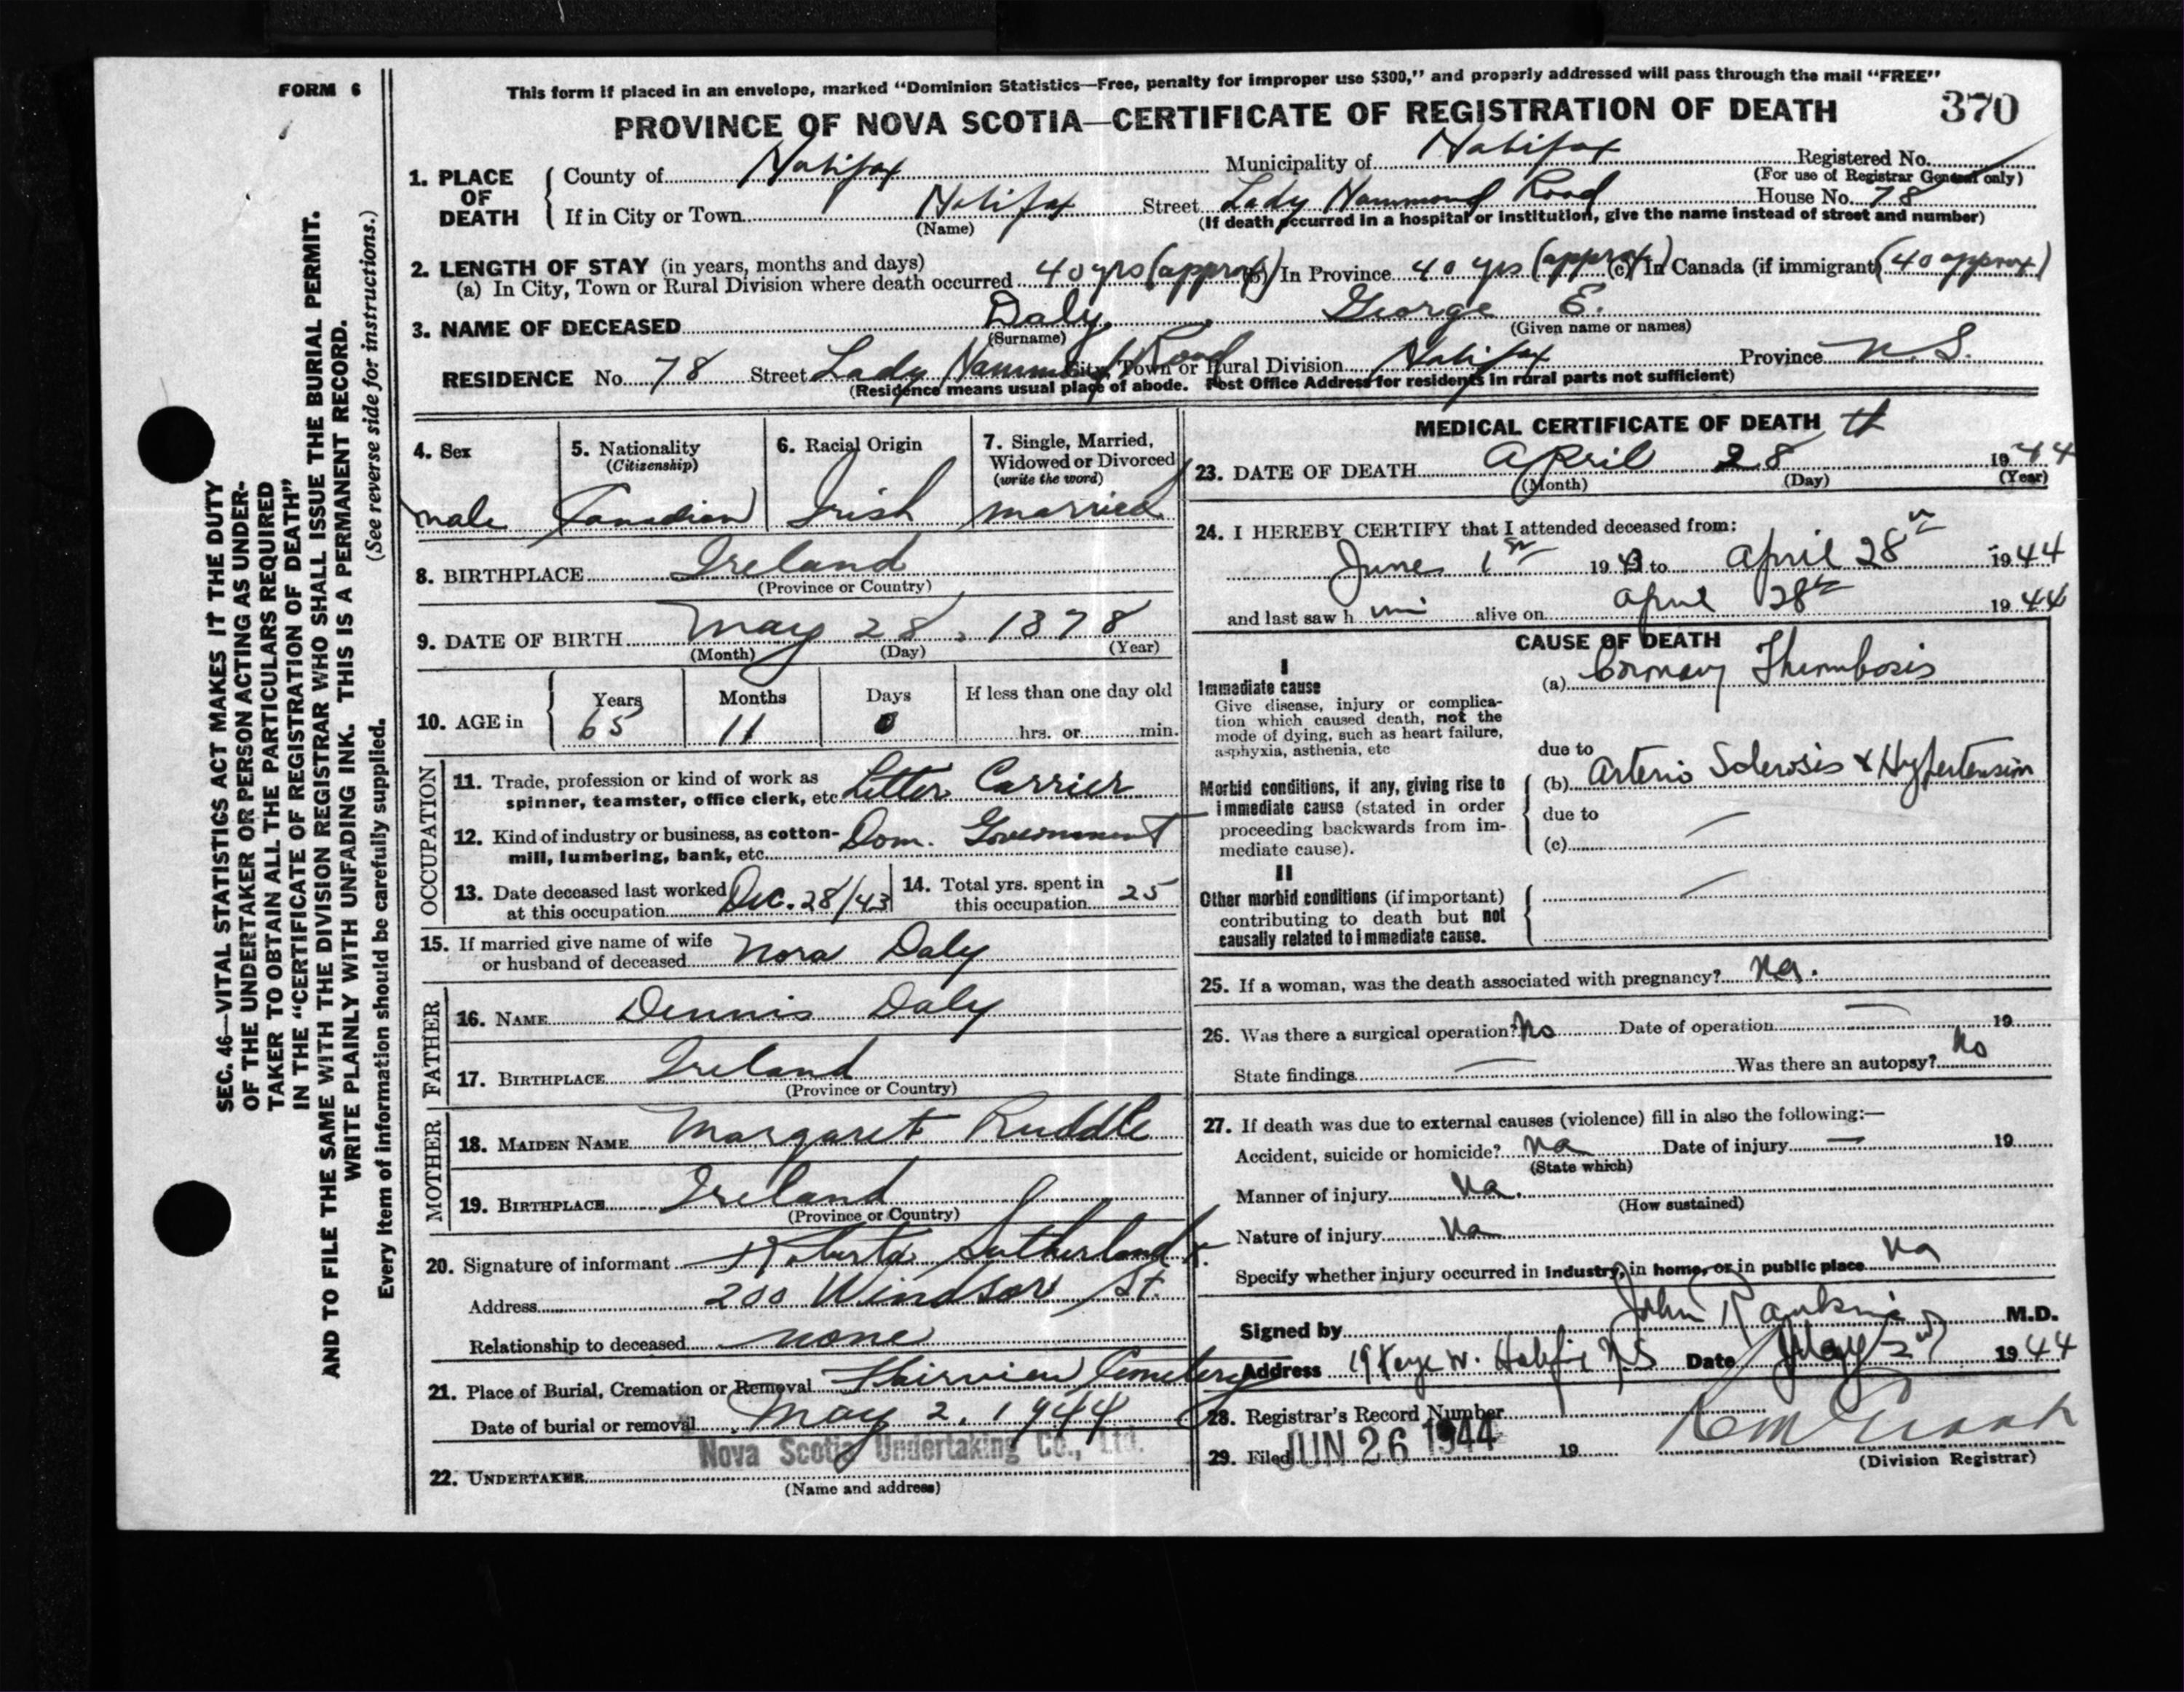 FORM 6
This form if placed in an envelope, marked "Dominion Statistics—Free, penalty for improper use $300," and properly addressed will pass through the mail "FREE"
PROVINCE OF NOVA SCOTIA—CERTIFICATE OF REGISTRATION OF DEATH 370
1. PLACE OF DEATH
County of Halifax Municipality of Halifax Registered No.
(For use of Registrar General only)
If in City or Town Halifax Street Lady Hammond Road House No. 78
(Name) (If death occurred in a hospital or institution, give the name instead of street and number)
2. LENGTH OF STAY (in years, months and days)
(a) In City, Town or Rural Division where death occurred 40 yrs (approx) (b) In Province 40 yrs (approx) (c) In Canada (if immigrant) (40 approx)
3. NAME OF DECEASED Daly, George E.
(Surname) (Given name or names)
RESIDENCE No. 78 Street Lady Hammond Road City, Town or Rural Division Halifax Province N.S.
(Residence means usual place of abode. Post Office Address for residents in rural parts not sufficient)
4. Sex
male
5. Nationality
(Citizenship)
Canadian
6. Racial Origin
Irish
7. Single, Married,
Widowed or Divorced
(write the word)
married
8. BIRTHPLACE Ireland
(Province or Country)
9. DATE OF BIRTH May 28, 1878
(Month) (Day) (Year)
10. AGE in
Years Months Days If less than one day old
65 11 0 hrs. or min.
OCCUPATION
11. Trade, profession or kind of work as
spinner, teamster, office clerk, etc. Letter Carrier
12. Kind of industry or business, as cotton-
mill, lumbering, bank, etc. Dom. Government
13. Date deceased last worked
at this occupation Dec. 28/43
14. Total yrs. spent in
this occupation 25
15. If married give name of wife
or husband of deceased Nora Daly
FATHER
16. NAME Dennis Daly
17. BIRTHPLACE Ireland
(Province or Country)
MOTHER
18. MAIDEN NAME Margaret Ruddle
19. BIRTHPLACE Ireland
(Province or Country)
20. Signature of informant Roberta Sutherland
Address 200 Windsor St.
Relationship to deceased none
21. Place of Burial, Cremation or Removal Fairview Cemetery
Date of burial or removal May 2, 1944
Nova Scotia Undertaking Co., Ltd.
22. UNDERTAKER
(Name and address)
MEDICAL CERTIFICATE OF DEATH
23. DATE OF DEATH April 28th 1944
(Month) (Day) (Year)
24. I HEREBY CERTIFY that I attended deceased from:
June 1st 1943 to April 28th 1944
and last saw him alive on April 28th 1944
CAUSE OF DEATH
I
Immediate cause
Give disease, injury or complica-
tion which caused death, not the
mode of dying, such as heart failure,
asphyxia, asthenia, etc
(a) Coronary Thrombosis
due to
Morbid conditions, if any, giving rise to
immediate cause (stated in order
proceeding backwards from im-
mediate cause).
(b) Arterio Sclerosis & Hypertension
due to
(c) —
II
Other morbid conditions (if important)
contributing to death but not
causally related to immediate cause.
—
25. If a woman, was the death associated with pregnancy? na.
26. Was there a surgical operation? No Date of operation — 19
State findings — Was there an autopsy? No
27. If death was due to external causes (violence) fill in also the following:—
Accident, suicide or homicide? na Date of injury — 19
(State which)
Manner of injury na.
(How sustained)
Nature of injury na
Specify whether injury occurred in industry, in home, or in public place na
Signed by John Rankine M.D.
Address 19 Kaye W. Halifax N.S Date May 2nd 1944
28. Registrar's Record Number
29. Filed JUN 26 1944 19
(Division Registrar)
SEC. 46—VITAL STATISTICS ACT MAKES IT THE DUTY
OF THE UNDERTAKER OR PERSON ACTING AS UNDER-
TAKER TO OBTAIN ALL THE PARTICULARS REQUIRED
IN THE "CERTIFICATE OF REGISTRATION OF DEATH"
AND TO FILE THE SAME WITH THE DIVISION REGISTRAR WHO SHALL ISSUE THE BURIAL PERMIT.
WRITE PLAINLY WITH UNFADING INK. THIS IS A PERMANENT RECORD.
(See reverse side for instructions.)
Every item of information should be carefully supplied.